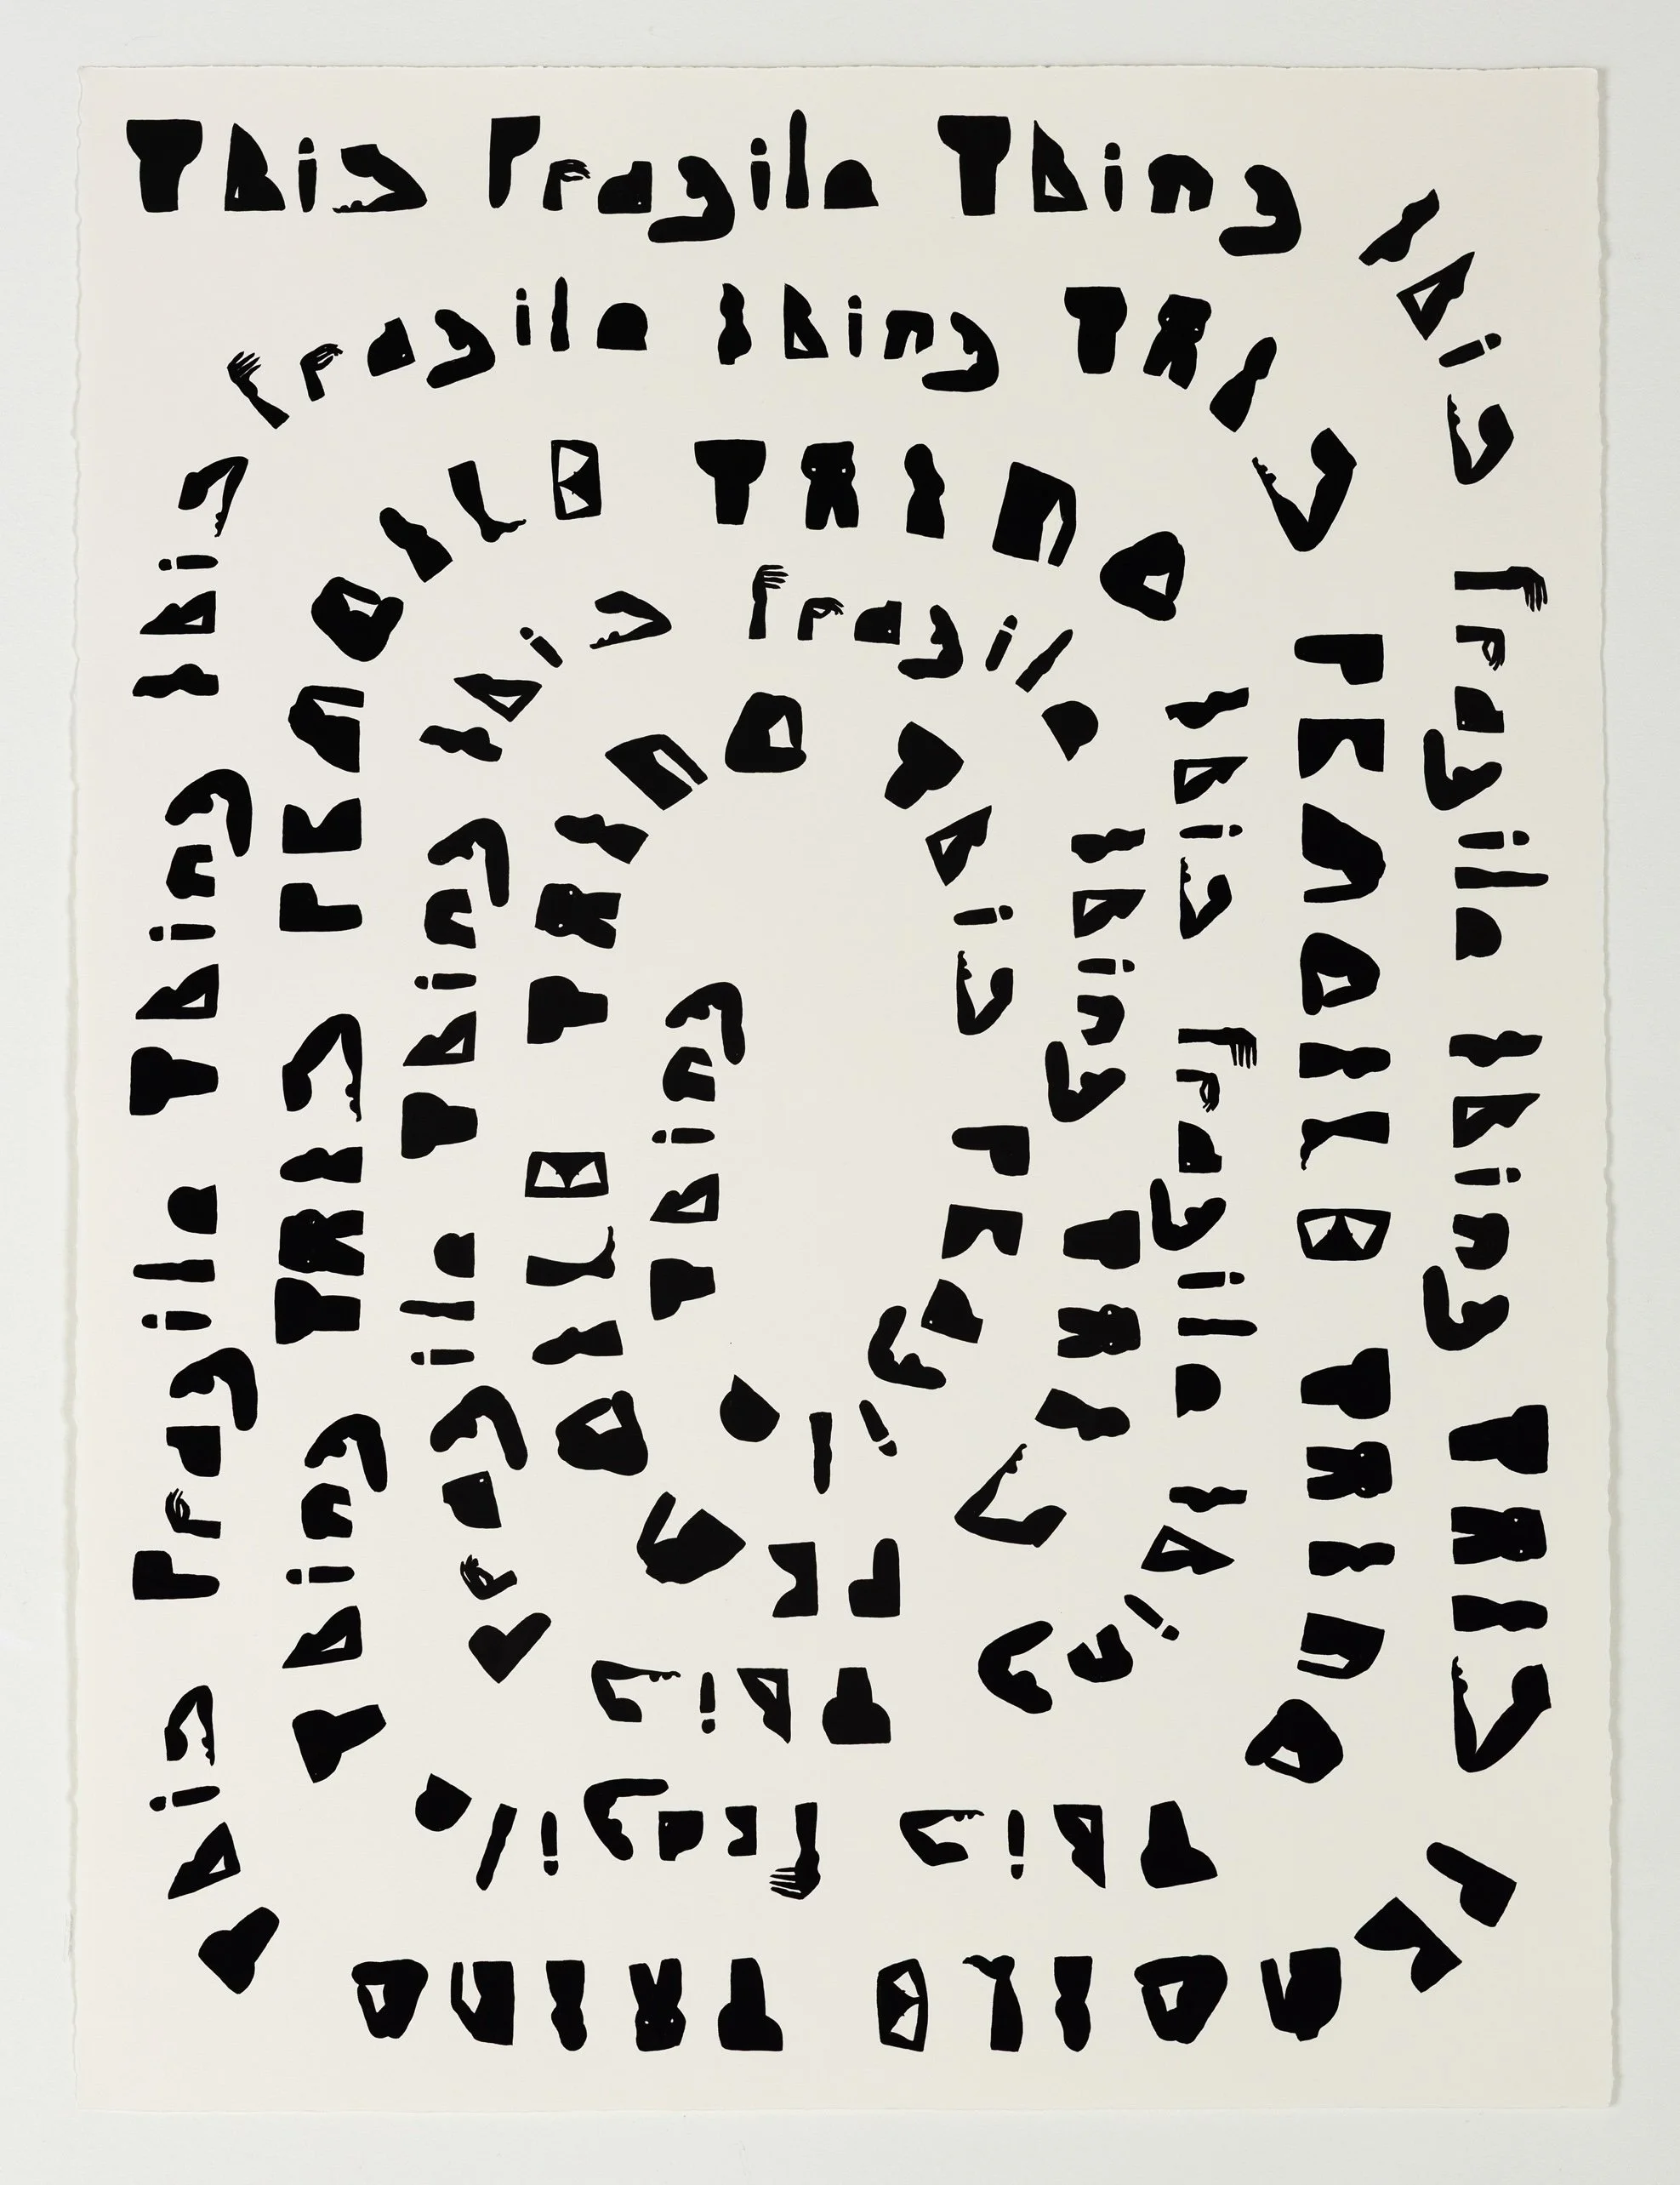 This Fragile Thing this
fragile thing THIS
FRAGILE THING
This Fragile Thing this
fragile thing THIS
FRAGILE THING
This fragile
Thing THIS FRAGILE THING
this fragile thing
This
Fragile Thing this
fragile thing THIS
FRAGILE THING
This FRagile
Thing